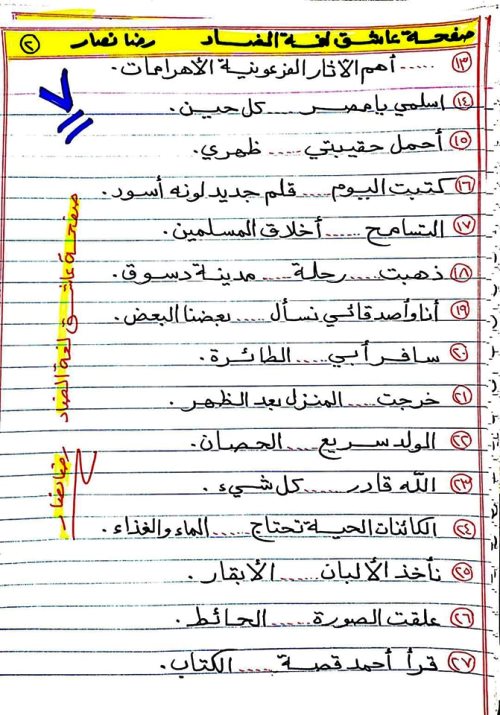 صفحة عاشق لغة الضاد رضا نصار ٢
١٣ ..... أهم الآثار الفرعونية الأهرامات.
١٤ اسلمي يا مصر ..... كل حين.
١٥ أحمل حقيبتي ..... ظهري.
١٦ كتبت اليوم ..... قلم جديد لونه أسود.
١٧ التسامح ..... أخلاق المسلمين.
١٨ ذهبت ..... رحلة ..... مدينة دسوق.
١٩ أنا وأصدقائي نسأل ..... بعضنا البعض.
٢٠ سافر أبي ..... الطائرة.
٢١ خرجت ..... المنزل بعد الظهر.
٢٢ الولد سريع ..... الحصان.
٢٣ الله قادر ..... كل شيء.
٢٤ الكائنات الحية تحتاج ..... الماء والغذاء.
٢٥ نأخذ الألبان ..... الأبقار.
٢٦ علقت الصورة ..... الحائط.
٢٧ قرأ أحمد قصة ..... الكتاب.
٧
صفحة عاشق لغة الضاد
رضا نصار